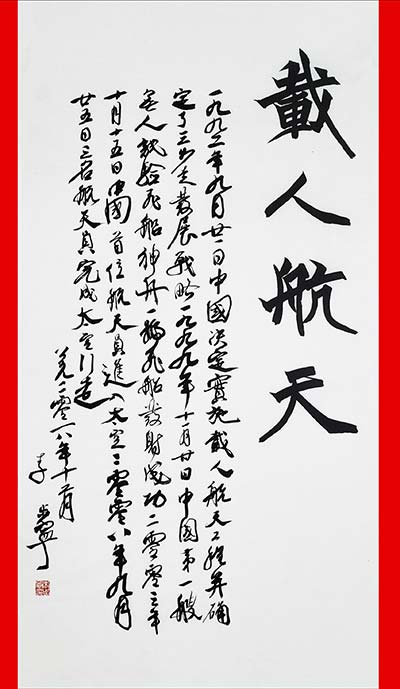 載人航天
一九九二年九月廿一日中國決定實施載人航天工程并确
定了三步走發展戰略一九九九年十一月廿日中國第一艘
無人試驗飛船神舟一號飛船發射成功二零零三年
十月十五日中國首位航天員進入太空二零零八年九月
廿五日三名航天員完成太空行走
二零一八年十二月
李